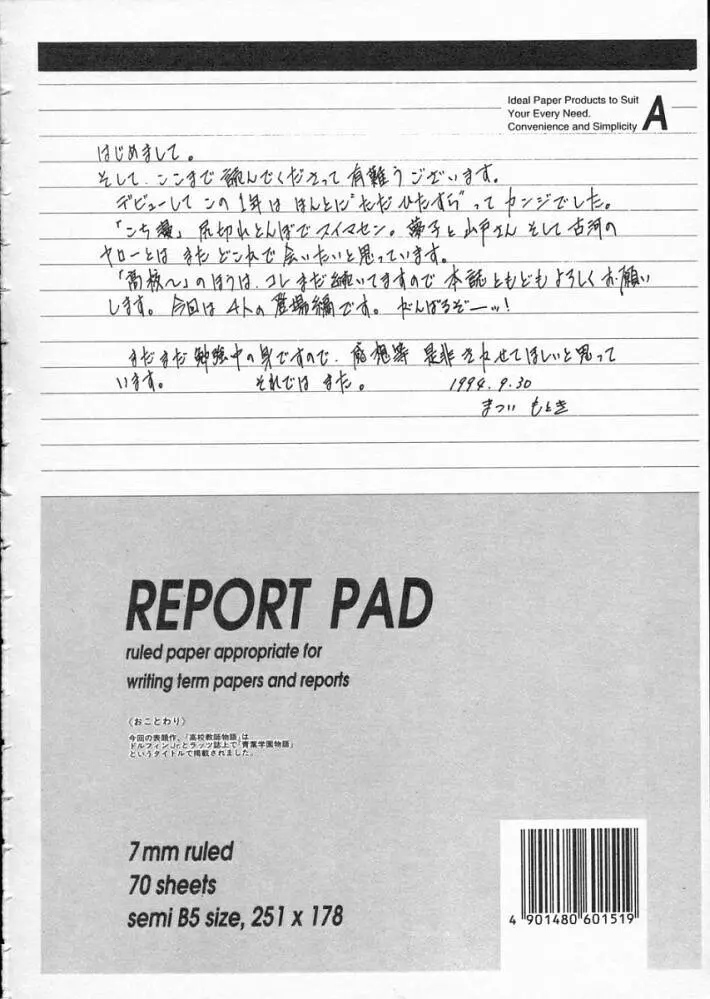 Ideal Paper Products to Suit
Your Every Need.
Convenience and Simplicity A
はじめまして。
そして、ここまで読んでくださって有難うございます。
デビューしてこの1年はほんとに“ただひたすら”ってカンジでした。
「こち漫」尻切れとんぼでスイマセン。 子と山戸さんそして古河の
ヤローとはまたどこかで会いたいと思っています。
「高校〜」のほうは、コレまだ続いてますので本誌ともどもよろしくお願い
します。今回は4人の登場編です。がんばるぞーッ!
まだまだ勉強中の身ですので、感想等是非きかせてほしいと思って
います。 それではまた。 1994.9.30
まつい もとき
REPORT PAD
ruled paper appropriate for
writing term papers and reports
《おことわり》
今回の表題作、「高校教師物語」は
ドルフィンJr.とラッツ誌上で「青葉学園物語」
というタイトルで掲載されました。
7mm ruled
70 sheets
semi B5 size, 251 x 178
4 901480 601519